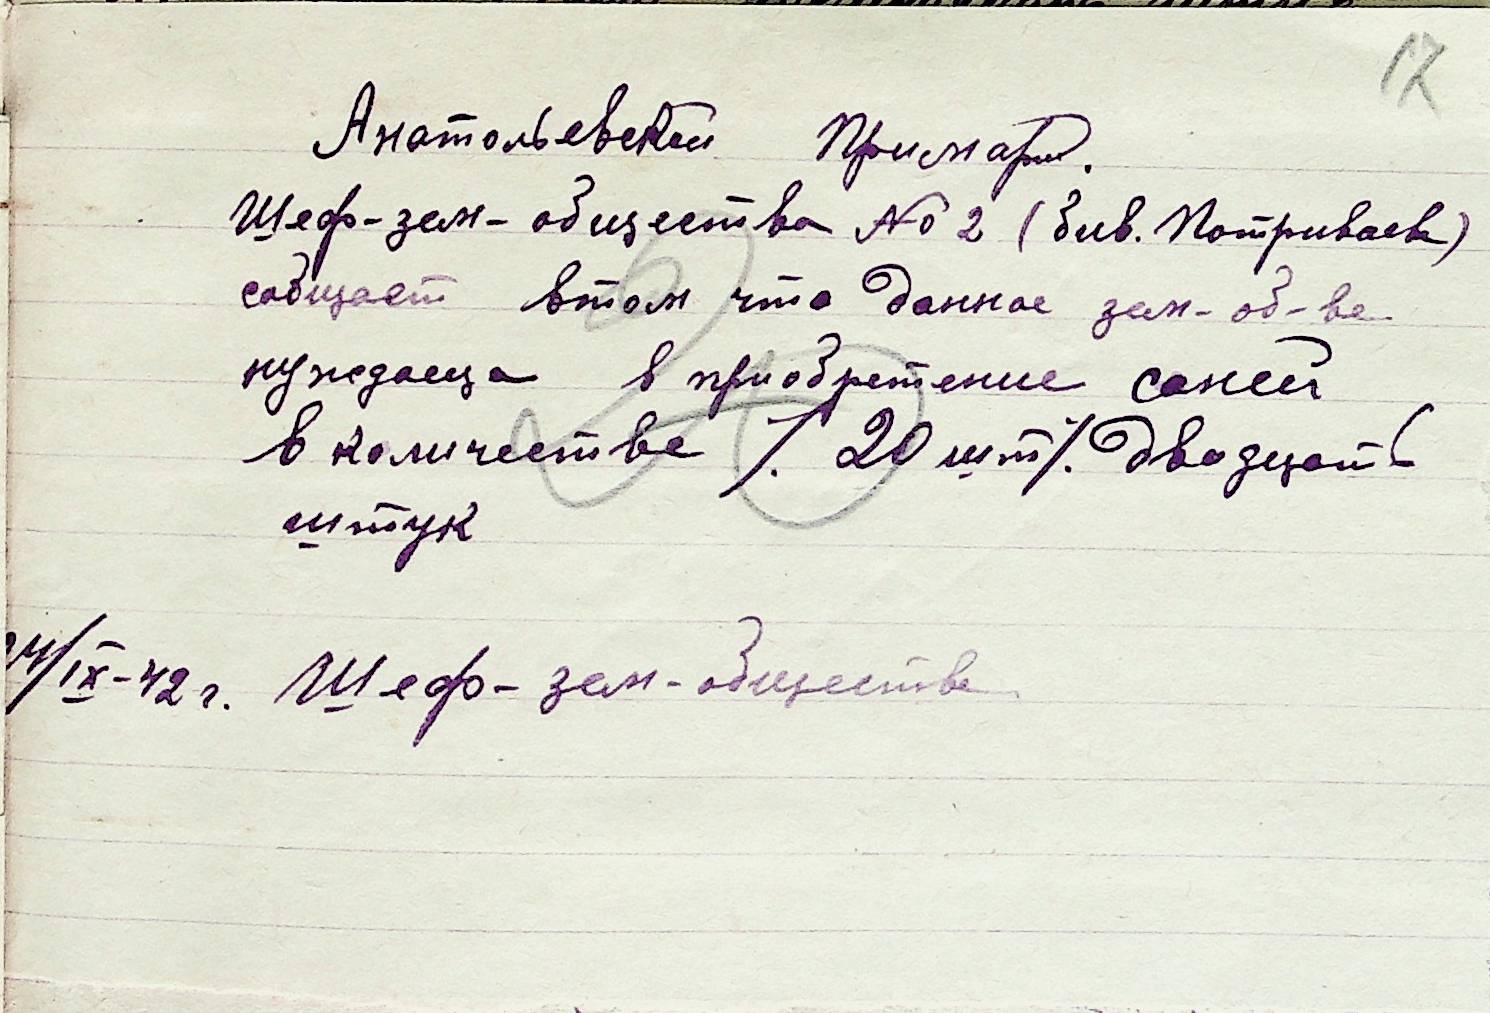 17
Анатольевской Примарии.
Шеф-зем-общества № 2 (бив. Потриваева)
собщает втом что данное зем-об-ве
нуждаеца в приобретение саней
в количестве /. 20 шт/. двадцать
штук
24/IX-42 г. Шеф-зем-обществе